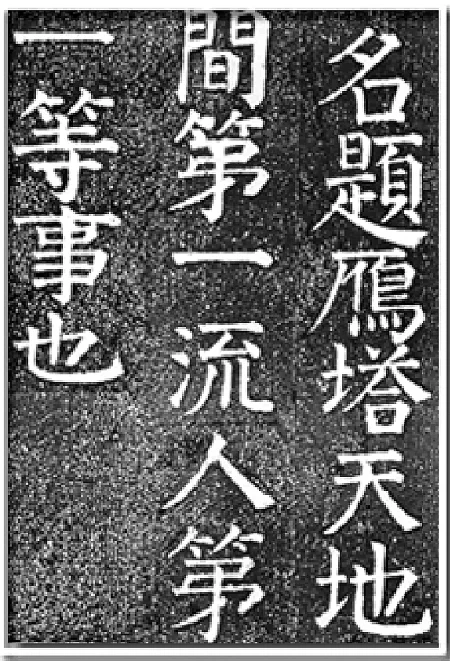 名題鴈塔天地
間第一流人第
一等事也